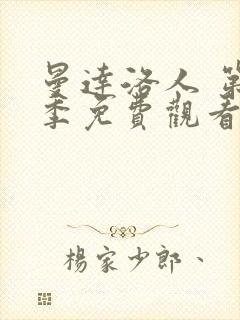 曼達洛人 第
季免費觀看
楊家少郎、